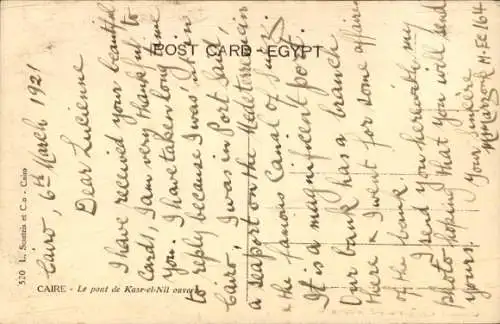 POST CARD - EGYPT
520 L. Scortzis et C.o - Caire
CAIRE - Le pont de Kasr-el-Nil ouvert
Cairo, 6th March 1921
Dear Lucienne
I have received your beautiful
cards, I am very thankful to
you. I have taken long time
to reply because I was not in
Cairo, I was in Port Said,
a seaport on the Mediterrenean
& the famous Canal of Suez
It is a magnificent port.
Our bank has a branch
there & I went for some affairs
of the bank.
I send you herewith my
photo hoping that you will send
yours.
Your sincere